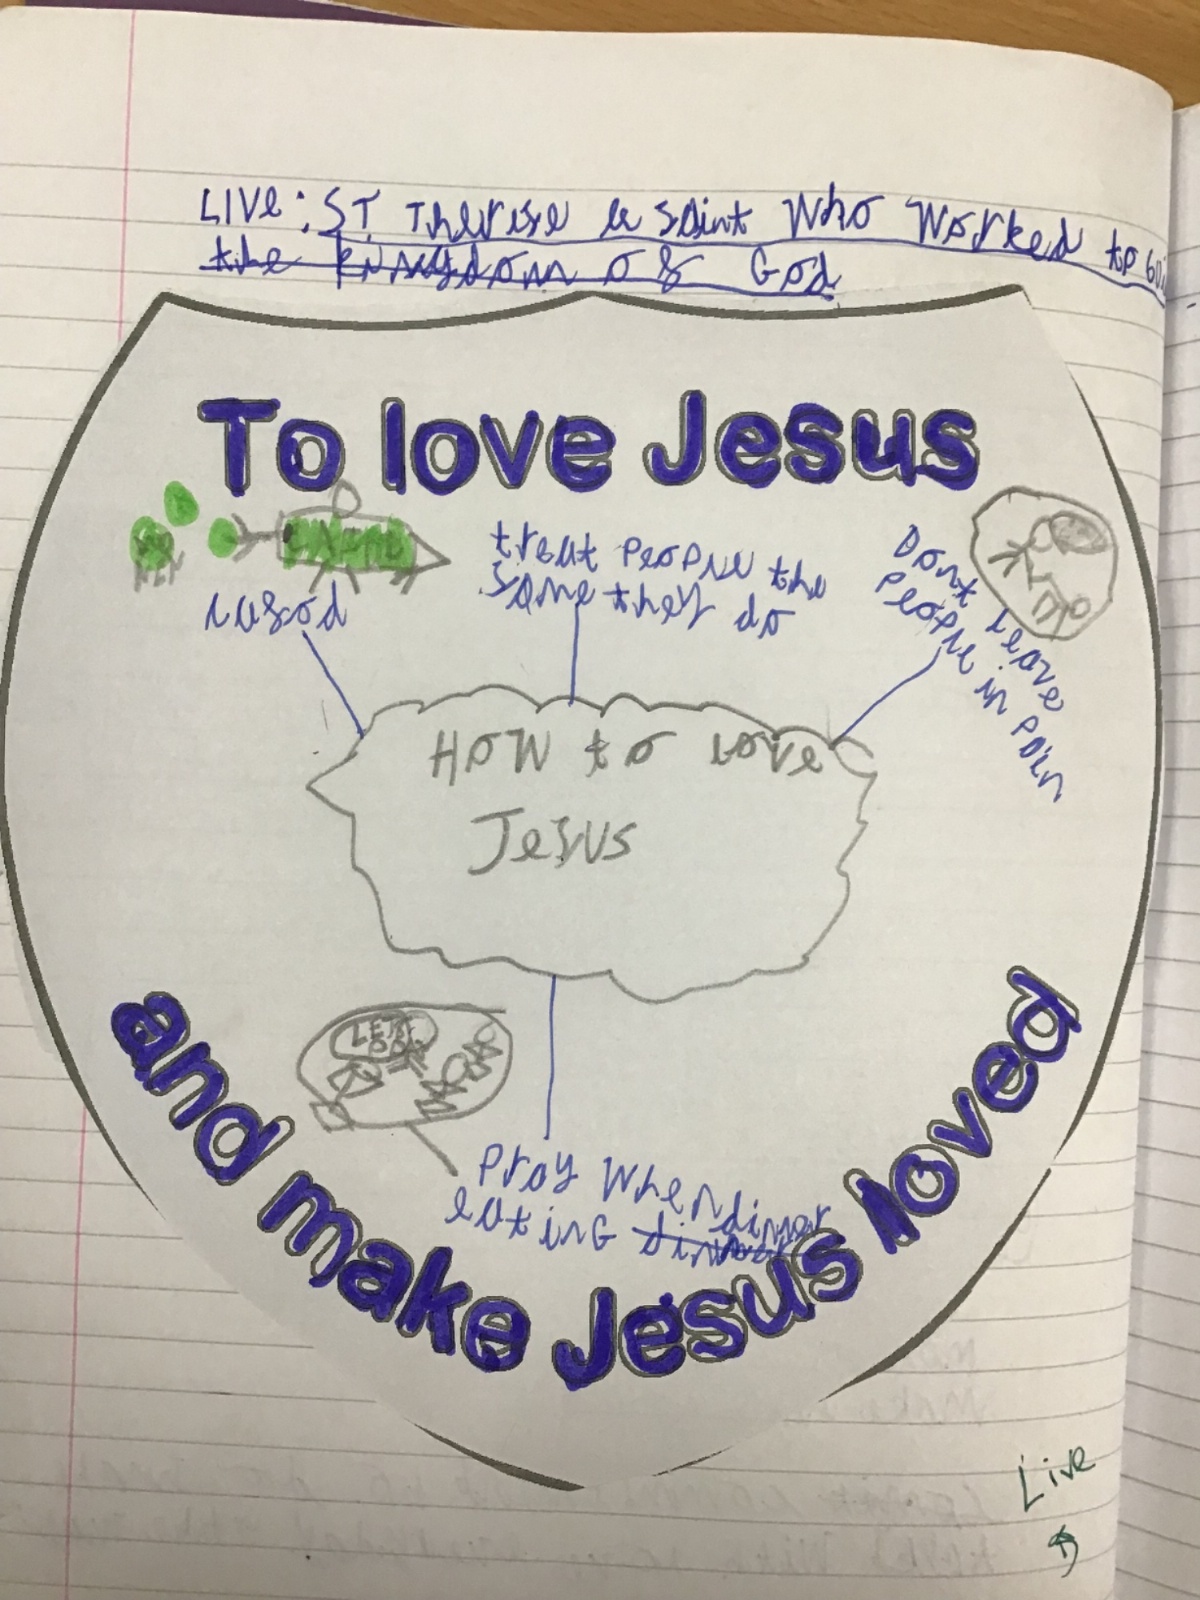 LIVE: ST Therise a saint Who Worked to
the kingdom of God
To love Jesus
treat People the
same they do
Dont leave
People in pain
HOW to love
Jesus
LETS
Pray When
eating dinner
and make Jesus loved
Live